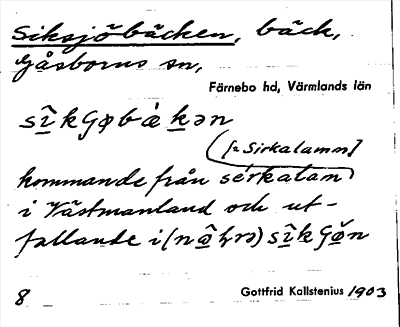 Siksjöbäcken, bäck,
Gåsborns sn,
Färnebo hd, Värmlands län
[= Sirkalamm]
kommande från sérkalam
i Västmanland och ut-
fallande i
8 Gottfrid Kallstenius 1903